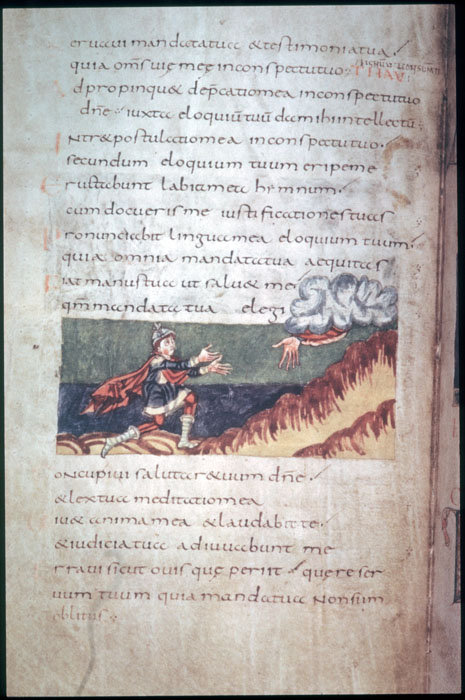 eruaui mandatatua & testimoniatua
quia om̄s uię meę inconspectutuo
dpropinqu& dep̄cationmea inconspectutuo
dn̄e iuxta eloquiū tuū damihi intellectū
Ntr& postulatiomea inconspectutuo
secundum eloquium tuum eripeme
ructabunt labiamea hymnum
cum docueris me iustificationestuas
ronunciabit linguamea eloquium tuum
quia omnia mandatatua aequitas
iat manustua ut salu& me
qm̄ mandata tua elegi
oncupiui salutare tuum dn̄e
& lextua meditatiomea
iu& animamea & laudabit te
& iudiciatua adiuuabunt me
rraui sicut ouis quę periit quere ser
uum tuum quia mandatatua Nonsum
oblitus